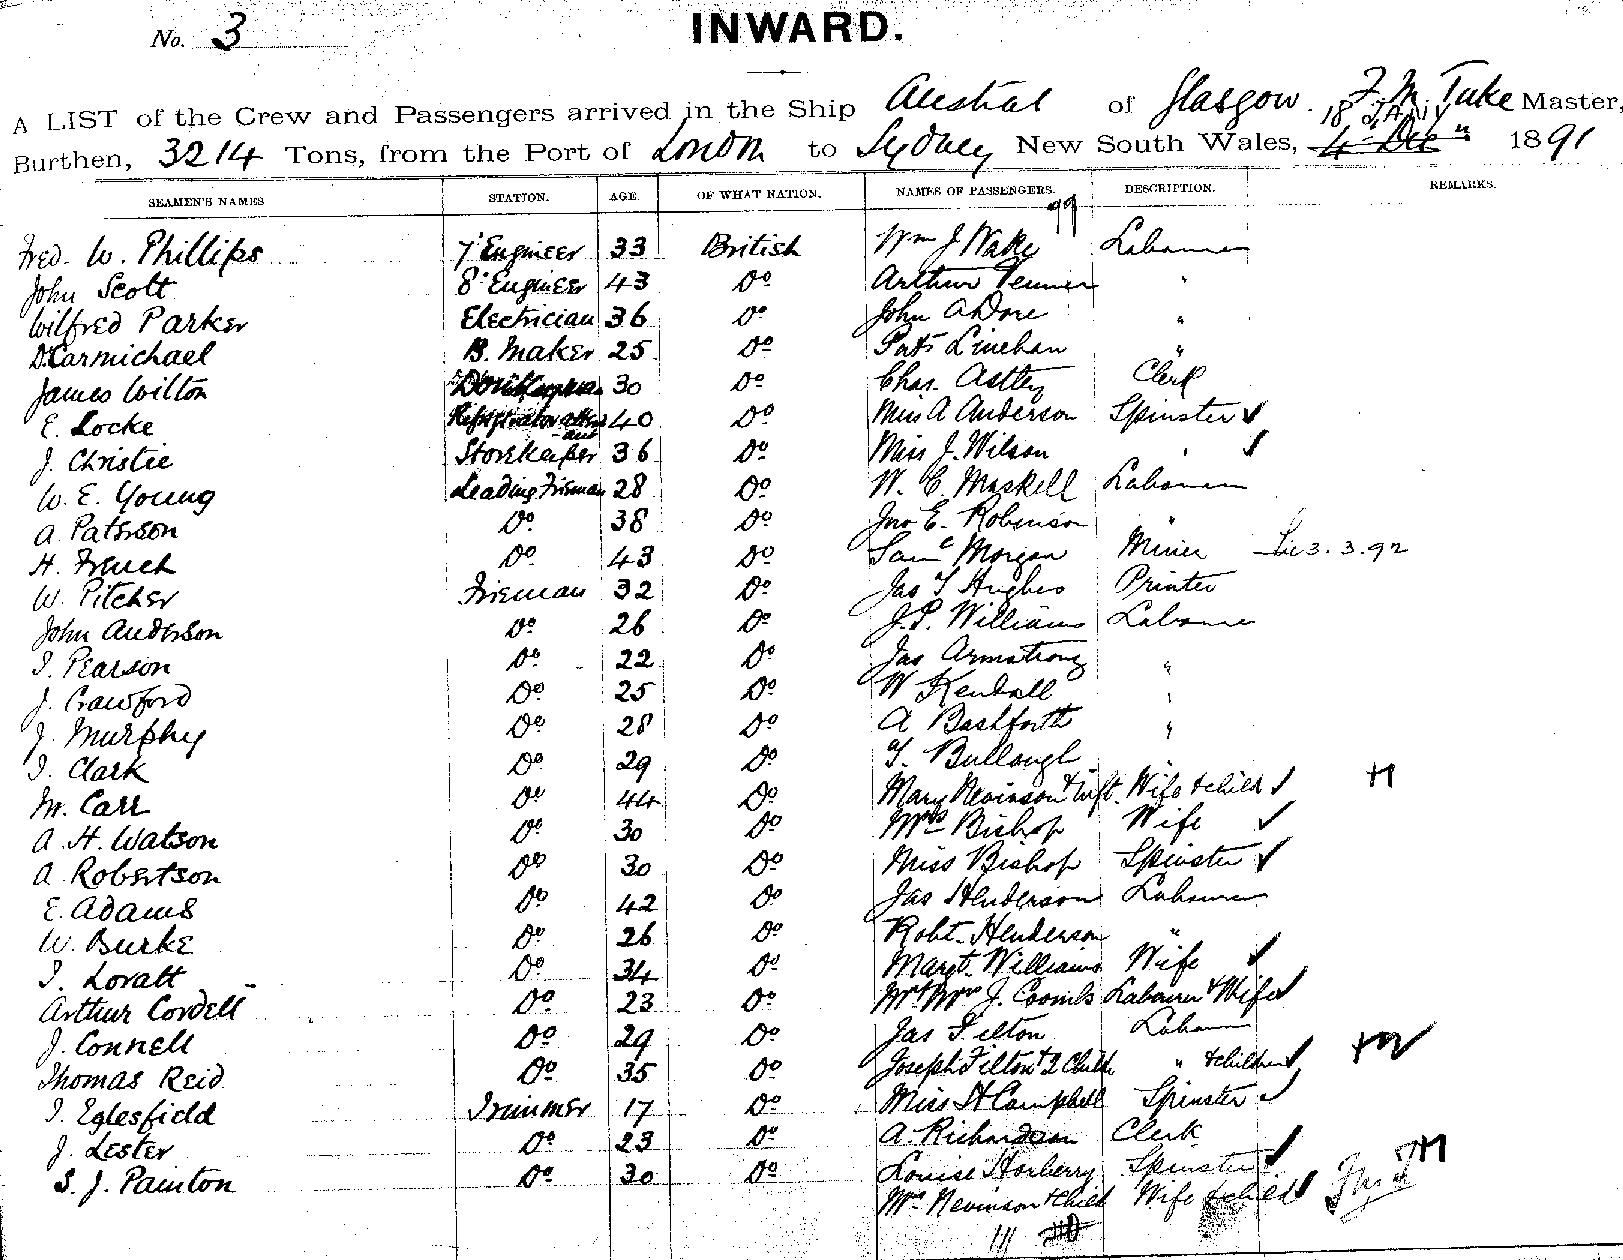 No. 3
INWARD.
A LIST of the Crew and Passengers arrived in the Ship Austral of Glasgow. F. M. Tuke Master,
18 JAN
Burthen, 3214 Tons, from the Port of London to Sydney New South Wales, 4 Dec 1891
SEAMEN'S NAMES STATION. AGE. OF WHAT NATION. NAMES OF PASSENGERS. DESCRIPTION. REMARKS.
99
Fred. W. Phillips 7' Engineer 33 British Wm J Wake Labourer
John Scott 8' Engineer 43 Do Arthur Venner "
Wilfred Parker Electrician 36 Do John A Dore "
D. Carmichael B. Maker 25 Do Pat. Linehan "
James Wilton 30 Do Chas. Astley Clerk
E. Locke 40 Do Miss A Anderson Spinster ✓
J. Christie Storekeeper 36 Do Miss J. Wilson " ✓
W. E. Young Leading Fireman 28 Do W. C. Maskell Labourer
A. Paterson Do 38 Do Jno E. Robinson "
H. French Do 43 Do Saml Morgan Miner 3.3.92
W. Pitcher Fireman 32 Do Jas T Hughes Printer
John Anderson Do 26 Do J. P. Williams Labourer
T. Pearson Do 22 Do Jas Armstrong "
J. Crawford Do 25 Do W Kendall "
J. Murphy Do 28 Do A Bashforth "
T. Clark Do 29 Do T. Bullough
M. Carr Do 44 Do Mary Nevinson & Inft. Wife & child ✓
A. H. Watson Do 30 Do Mrs Bishop Wife ✓
A. Robertson Do 30 Do Miss Bishop Spinster ✓
E. Adams Do 42 Do Jas Henderson Labourer
W. Burke Do 26 Do Robt. Henderson "
T. Lovatt Do 34 Do Margt. Williams Wife ✓
Arthur Cordell Do 23 Do Mr & Mrs J. Coombs Labourer & Wife ✓
J. Connell Do 29 Do Jas Filton Labourer
Thomas Reid Do 35 Do Joseph Filton & 2 Childn " & children ✓
T. Eglesfield Trimmer 17 Do Miss H Campbell Spinster ✓
J. Lester Do 23 Do A. Richardson Clerk
S. J. Painton Do 30 Do Louise Horberry Spinster ✓
Mrs Nevinson & Child Wife & child ✓
111